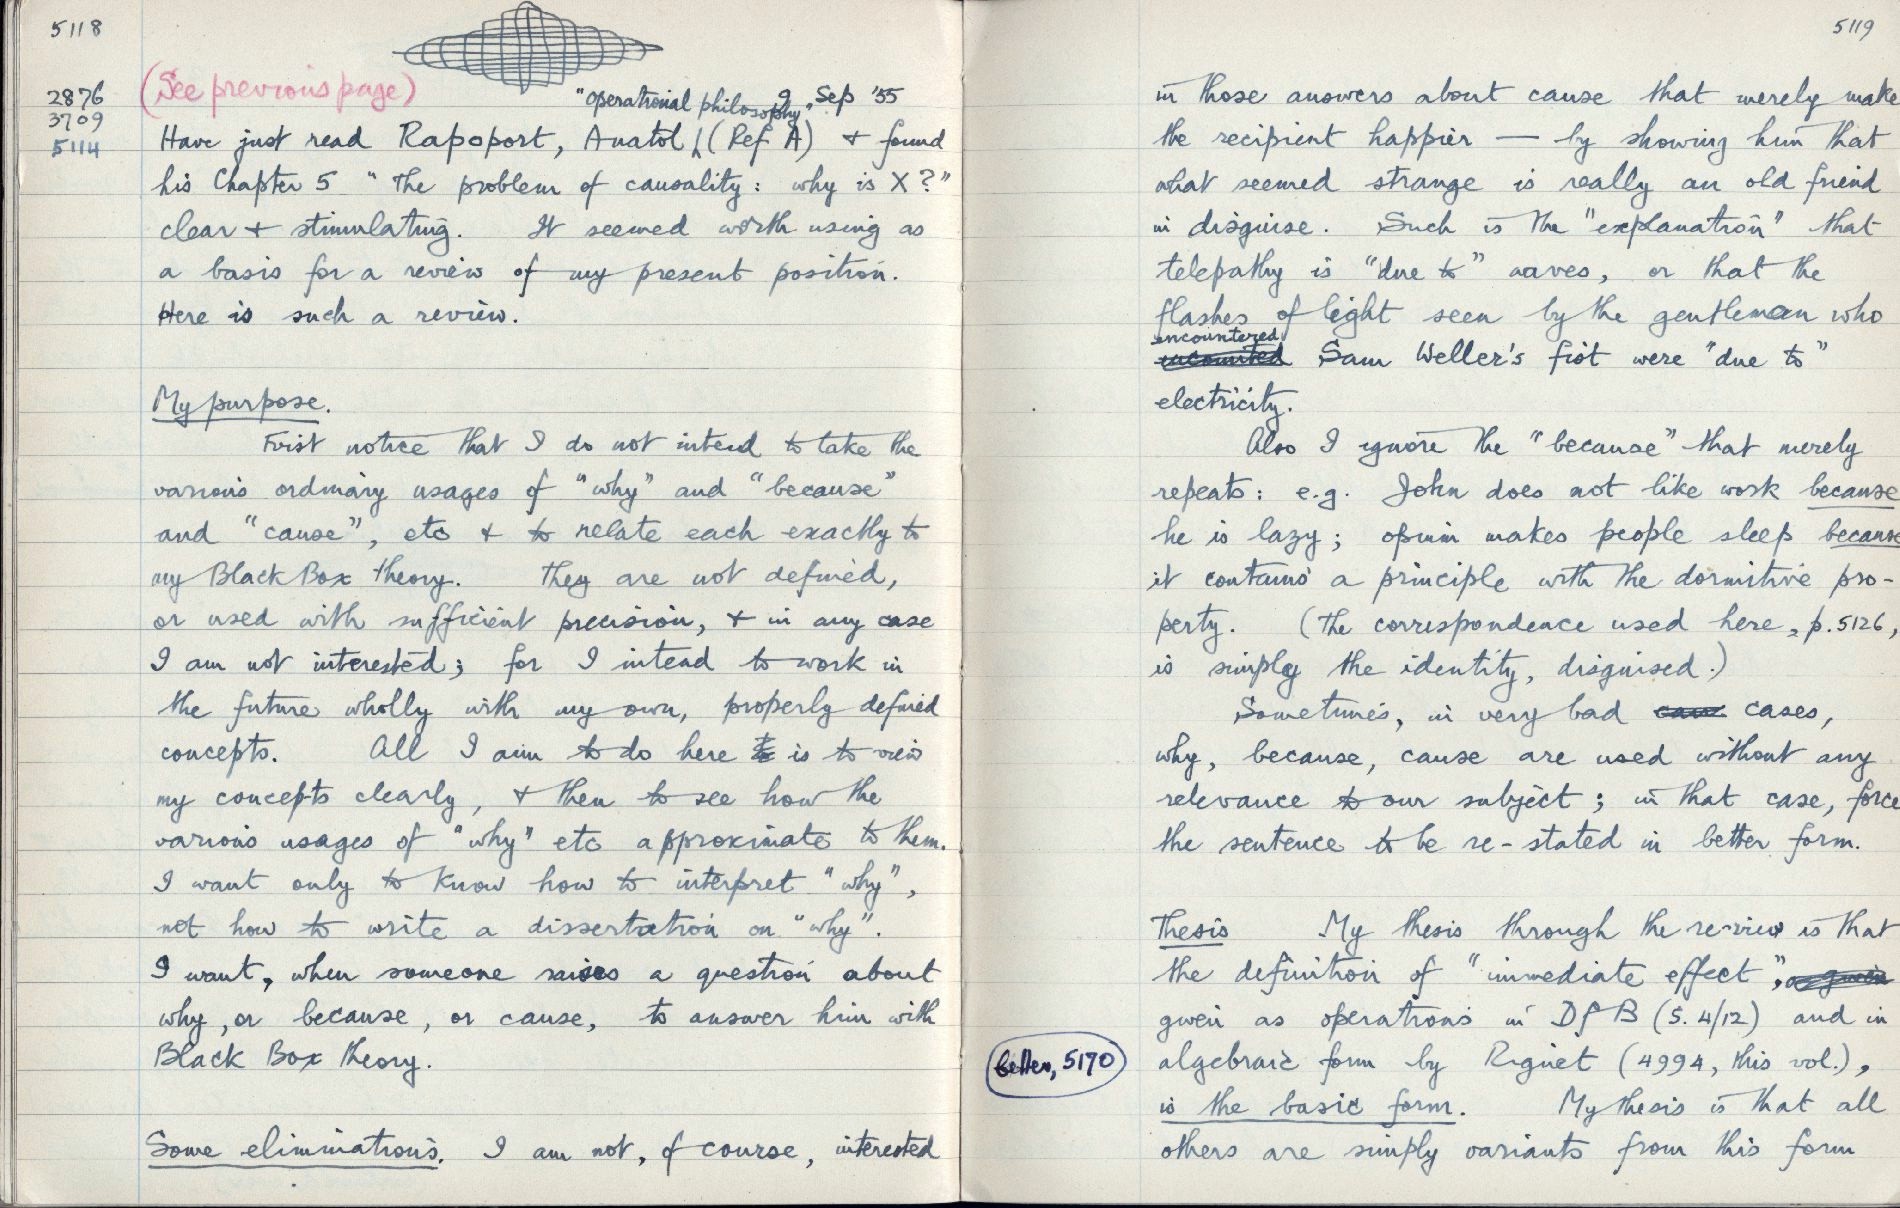 5118
(See previous page)
2876
3709
5114
9 Sep '55
"Operational philosophy"
Have just read Rapoport, Anatol (Ref A) + found
his Chapter 5 "The problem of causality: why is X?"
clear + stimulating. It seemed worth using as
a basis for a review of my present position.
Here is such a review.
My purpose.
First notice that I do not intend to take the
various ordinary usages of "why" and "because"
and "cause", etc + to relate each exactly to
my Black Box theory. They are not defined,
or used with sufficient precision, + in any case
I am not interested; for I intend to work in
the future wholly with my own, properly defined
concepts. All I aim to do here is to view
my concepts clearly, + then to see how the
various usages of "why" etc approximate to them.
I want only to know how to interpret "why",
not how to write a dissertation on "why".
I want, when someone raises a question about
why, or because, or cause, to answer him with
Black Box theory.
Some eliminations. I am not, of course, interested
5119
in those answers about cause that merely make
the recipient happier — by showing him that
what seemed strange is really an old friend
in disguise. Such is the "explanation" that
telepathy is "due to" waves, or that the
flashes of light seen by the gentleman who
encountered
Sam Weller's fist were "due to"
electricity.
Also I ignore the "because" that merely
repeats: e.g. John does not like work because
he is lazy; opium makes people sleep because
it contains a principle with the dormitive pro-
perty. (The correspondence used here, p.5126,
is simply the identity, disguised.)
Sometimes, in very bad cases,
why, because, cause are used without any
relevance to our subject; in that case, force
the sentence to be re-stated in better form.
Thesis My thesis through the re-view is that
the definition of "immediate effect",
given as operations in DfB (S. 4/12) and in
better, 5170
algebraic form by Riguet (4994, this vol.),
is the basic form. My thesis is that all
others are simply variants from this form